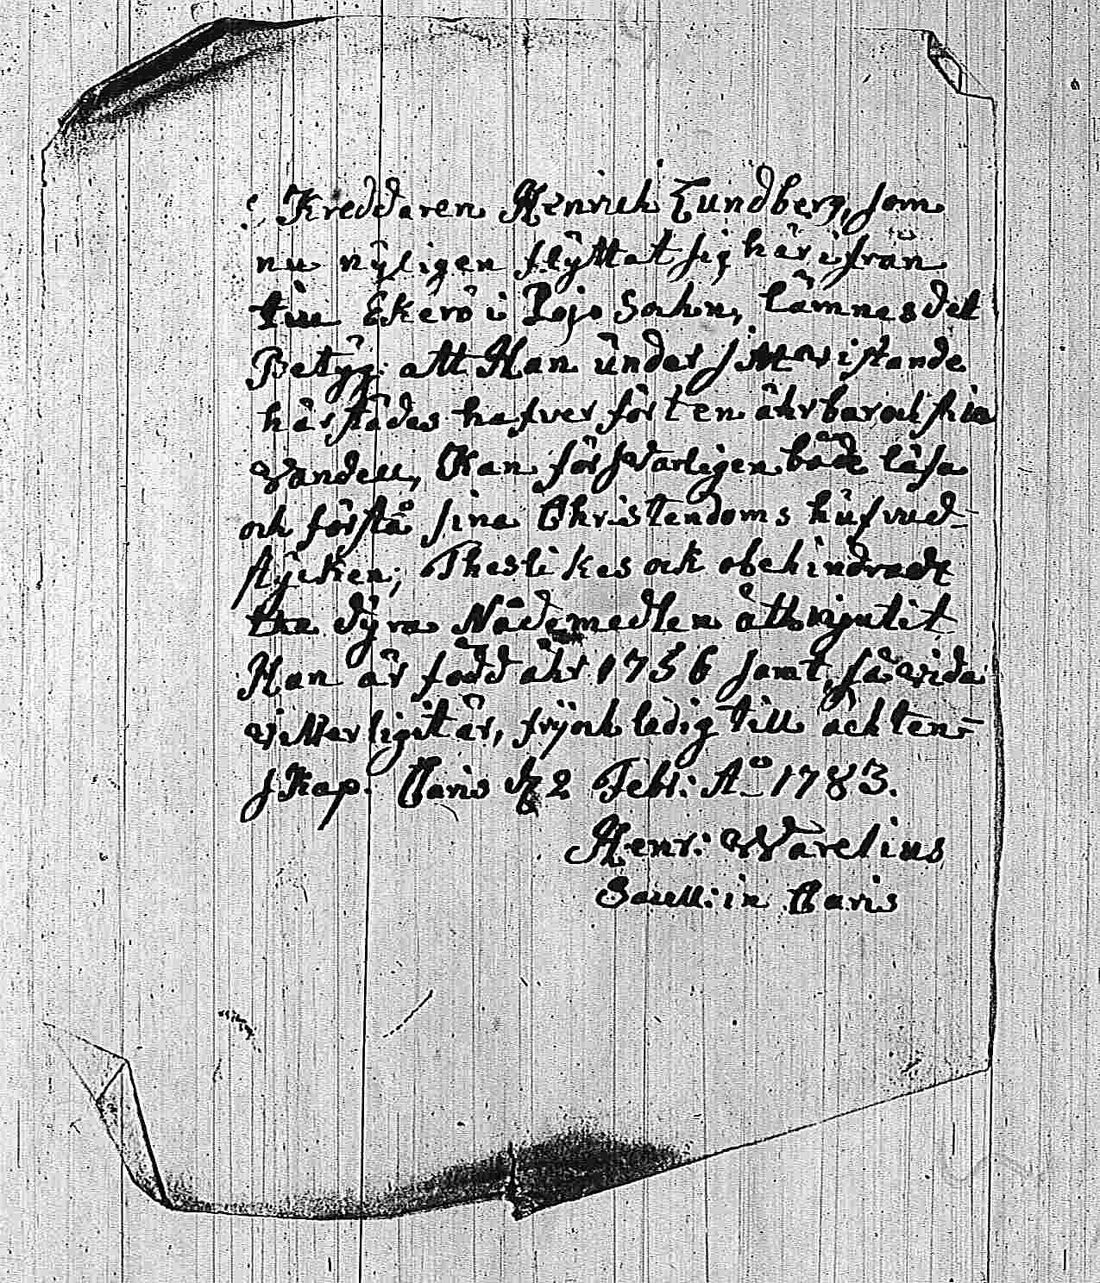 Skreddaren Henrich Lundberg, som
nu nyligen flyttat sig här ifrån
till Ekerö i Lojo Sochn, lämnas det
Betyg att Han under sitt vistande
härstädes hafver fört en ährbar och stilla
Vandell, Kan försvarligen både läsa
och förstå sina Christendoms hufvud-
stycken; Theslikes ock obehindradt
the dyra Nådemedlen åttnjutit
Han är född åhr 1756 samt, så vida
vitterligit är, fry och ledig till ächten-
skap. Caris d. 2 Febr: A:o 1783.
Henr: Warelius
Sacell: in Caris